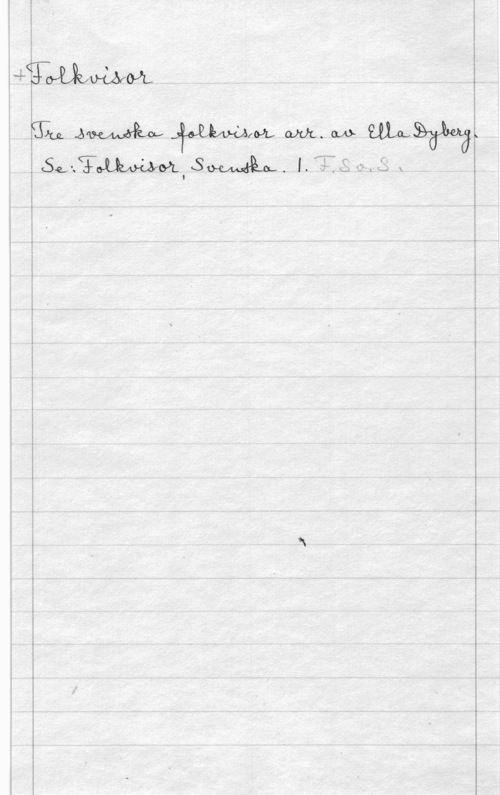 +Folkvisor
Tre svenska folkvisor arr. av Ella Dyberg.
Se: Folkvisor, Svenska. 1. F.S.o.S.